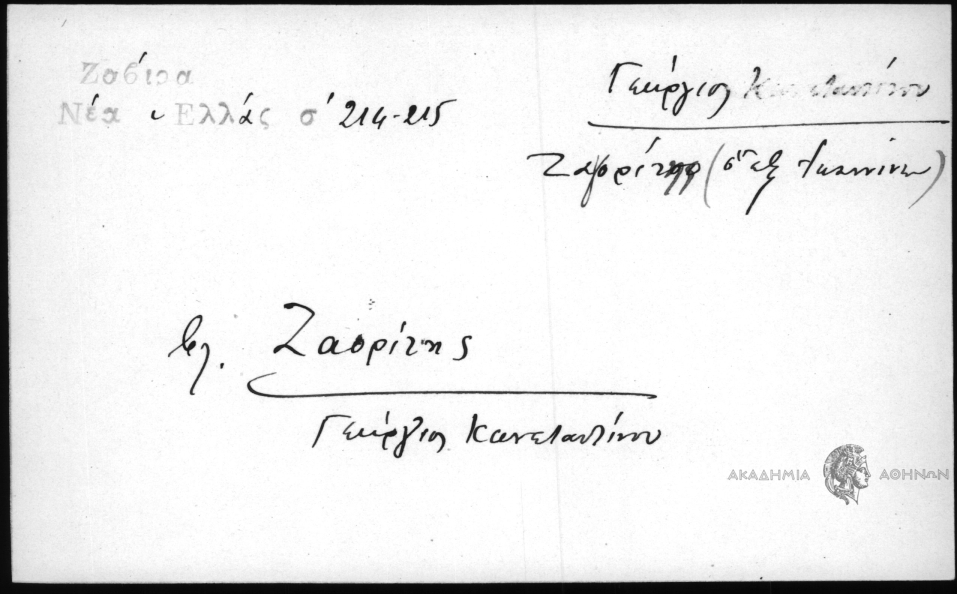 Ζαβίρα
Νέα Ελλάς σ' 214-215
Γεώργιος Κωνσταντίνου
Ζαγορίτης (ἐξ Ἰωαννίνων)
βλ. Ζαορίτης
Γεώργιος Κωνσταντίνου
ΑΚΑΔΗΜΙΑ ΑΘΗΝΩΝ